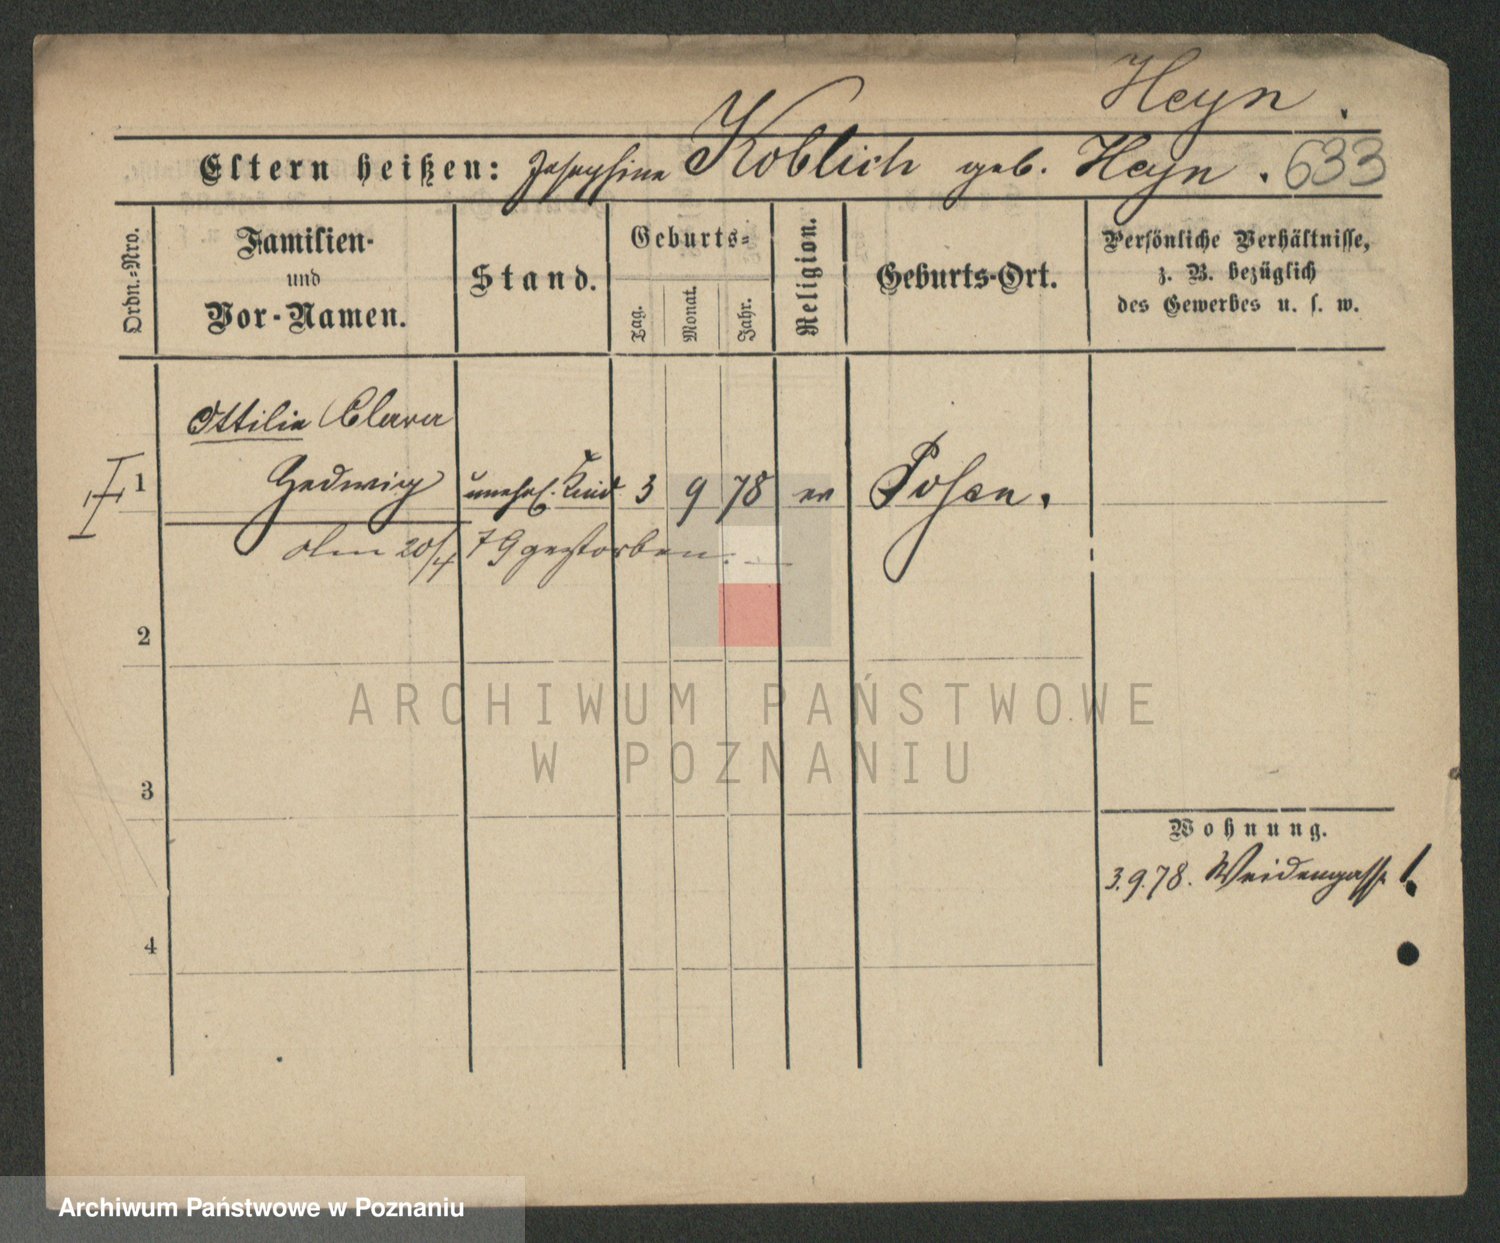 Heyn.
Eltern heißen: Josephine Koblich geb. Heyn. 633
Ordn.-Nro.
Familien-
und
Vor-Namen.
Stand.
Geburts-
Tag.
Monat.
Jahr.
Religion.
Geburts-Ort.
Persönliche Verhältnisse,
z. B. bezüglich
des Gewerbes u. s. w.
Ottilie Clara
1 Hedwig unehel. Kind 3 9 78 ev Posen.
Am 20/4 79 gestorben.
2
3
4
Wohnung.
3.9.78. Weidengasse
ARCHIWUM PAŃSTWOWE
W POZNANIU
Archiwum Państwowe w Poznaniu